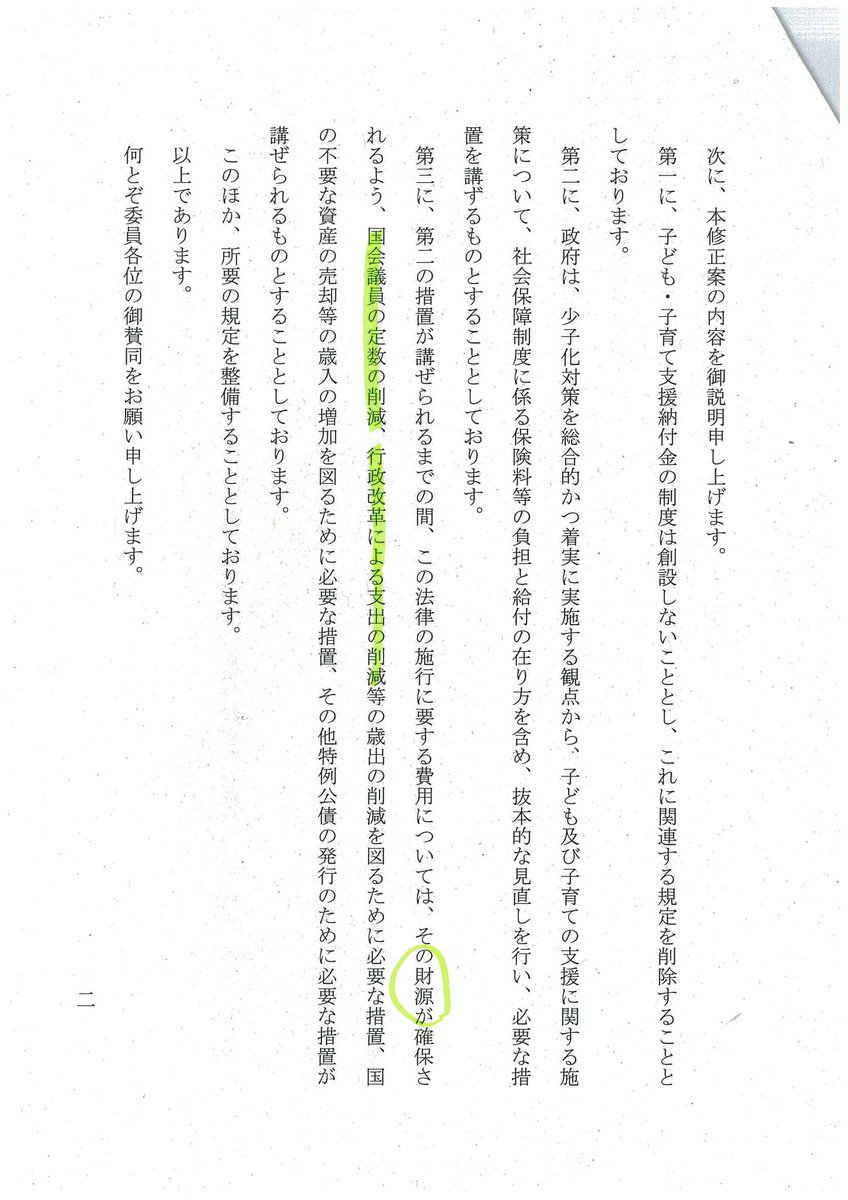 次に、本修正案の内容を御説明申し上げます。
第一に、子ども・子育て支援納付金の制度は創設しないこととし、これに関連する規定を削除することと
しております。
第二に、政府は、少子化対策を総合的かつ着実に実施する観点から、子ども及び子育ての支援に関する施
策について、社会保障制度に係る保険料等の負担と給付の在り方を含め、抜本的な見直しを行い、必要な措
置を講ずるものとすることとしております。
第三に、第二の措置が講ぜられるまでの間、この法律の施行に要する費用については、その財源が確保さ
れるよう、国会議員の定数の削減、行政改革による支出の削減等の歳出の削減を図るために必要な措置、国
の不要な資産の売却等の歳入の増加を図るために必要な措置、その他特例公債の発行のために必要な措置が
講ぜられるものとすることとしております。
このほか、所要の規定を整備することとしております。
以上であります。
何とぞ委員各位の御賛同をお願い申し上げます。
二